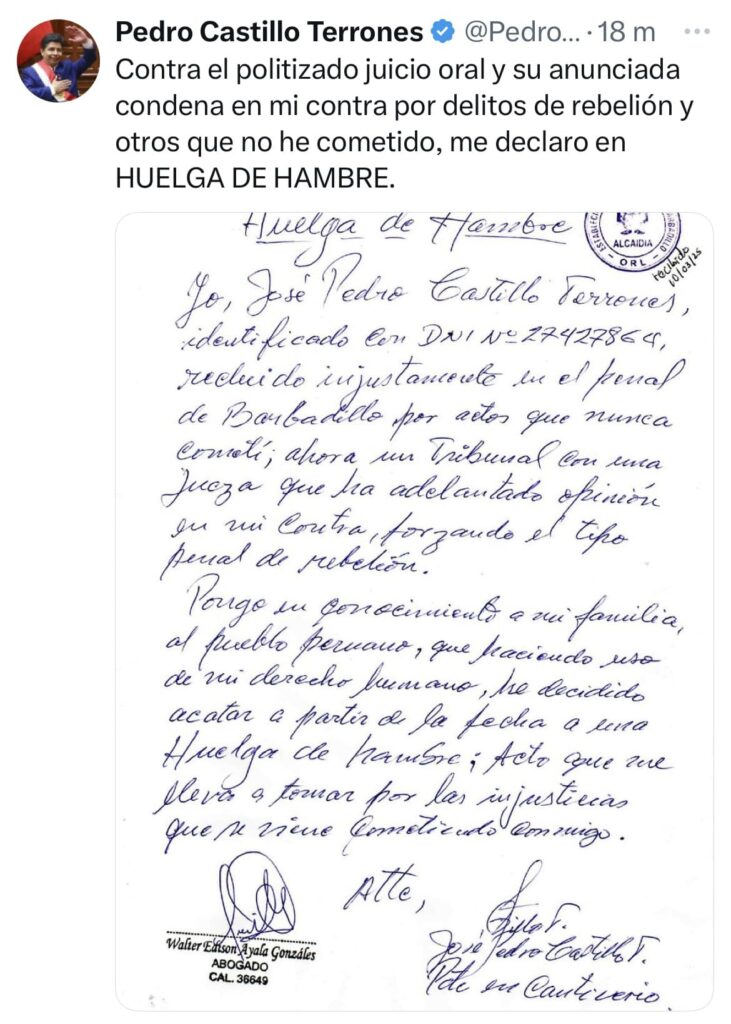 Pedro Castillo Terrones @Pedro... · 18 m
Contra el politizado juicio oral y su anunciada
condena en mi contra por delitos de rebelión y
otros que no he cometido, me declaro en
HUELGA DE HAMBRE.
Huelga de Hambre
ALCAIDIA
ORL
recibido
10/03/25
Yo, José Pedro Castillo Terrones,
identificado con DNI Nº 27427864,
recluido injustamente en el penal
de Barbadillo por actos que nunca
cometí; ahora un Tribunal con una
Jueza que ha adelantado opinión
en mi contra, forzando el tipo
penal de rebelión.
Pongo en conocimiento a mi familia,
al pueblo peruano, que haciendo uso
de mi derecho humano, he decidido
acatar a partir de la fecha a una
Huelga de hambre; Acto que me
lleva a tomar por las injusticias
que se viene cometiendo conmigo.
Atte,
Walter Edison Ayala Gonzáles
ABOGADO
CAL. 36649
José Pedro Castillo T.
Pdte en Cautiverio.